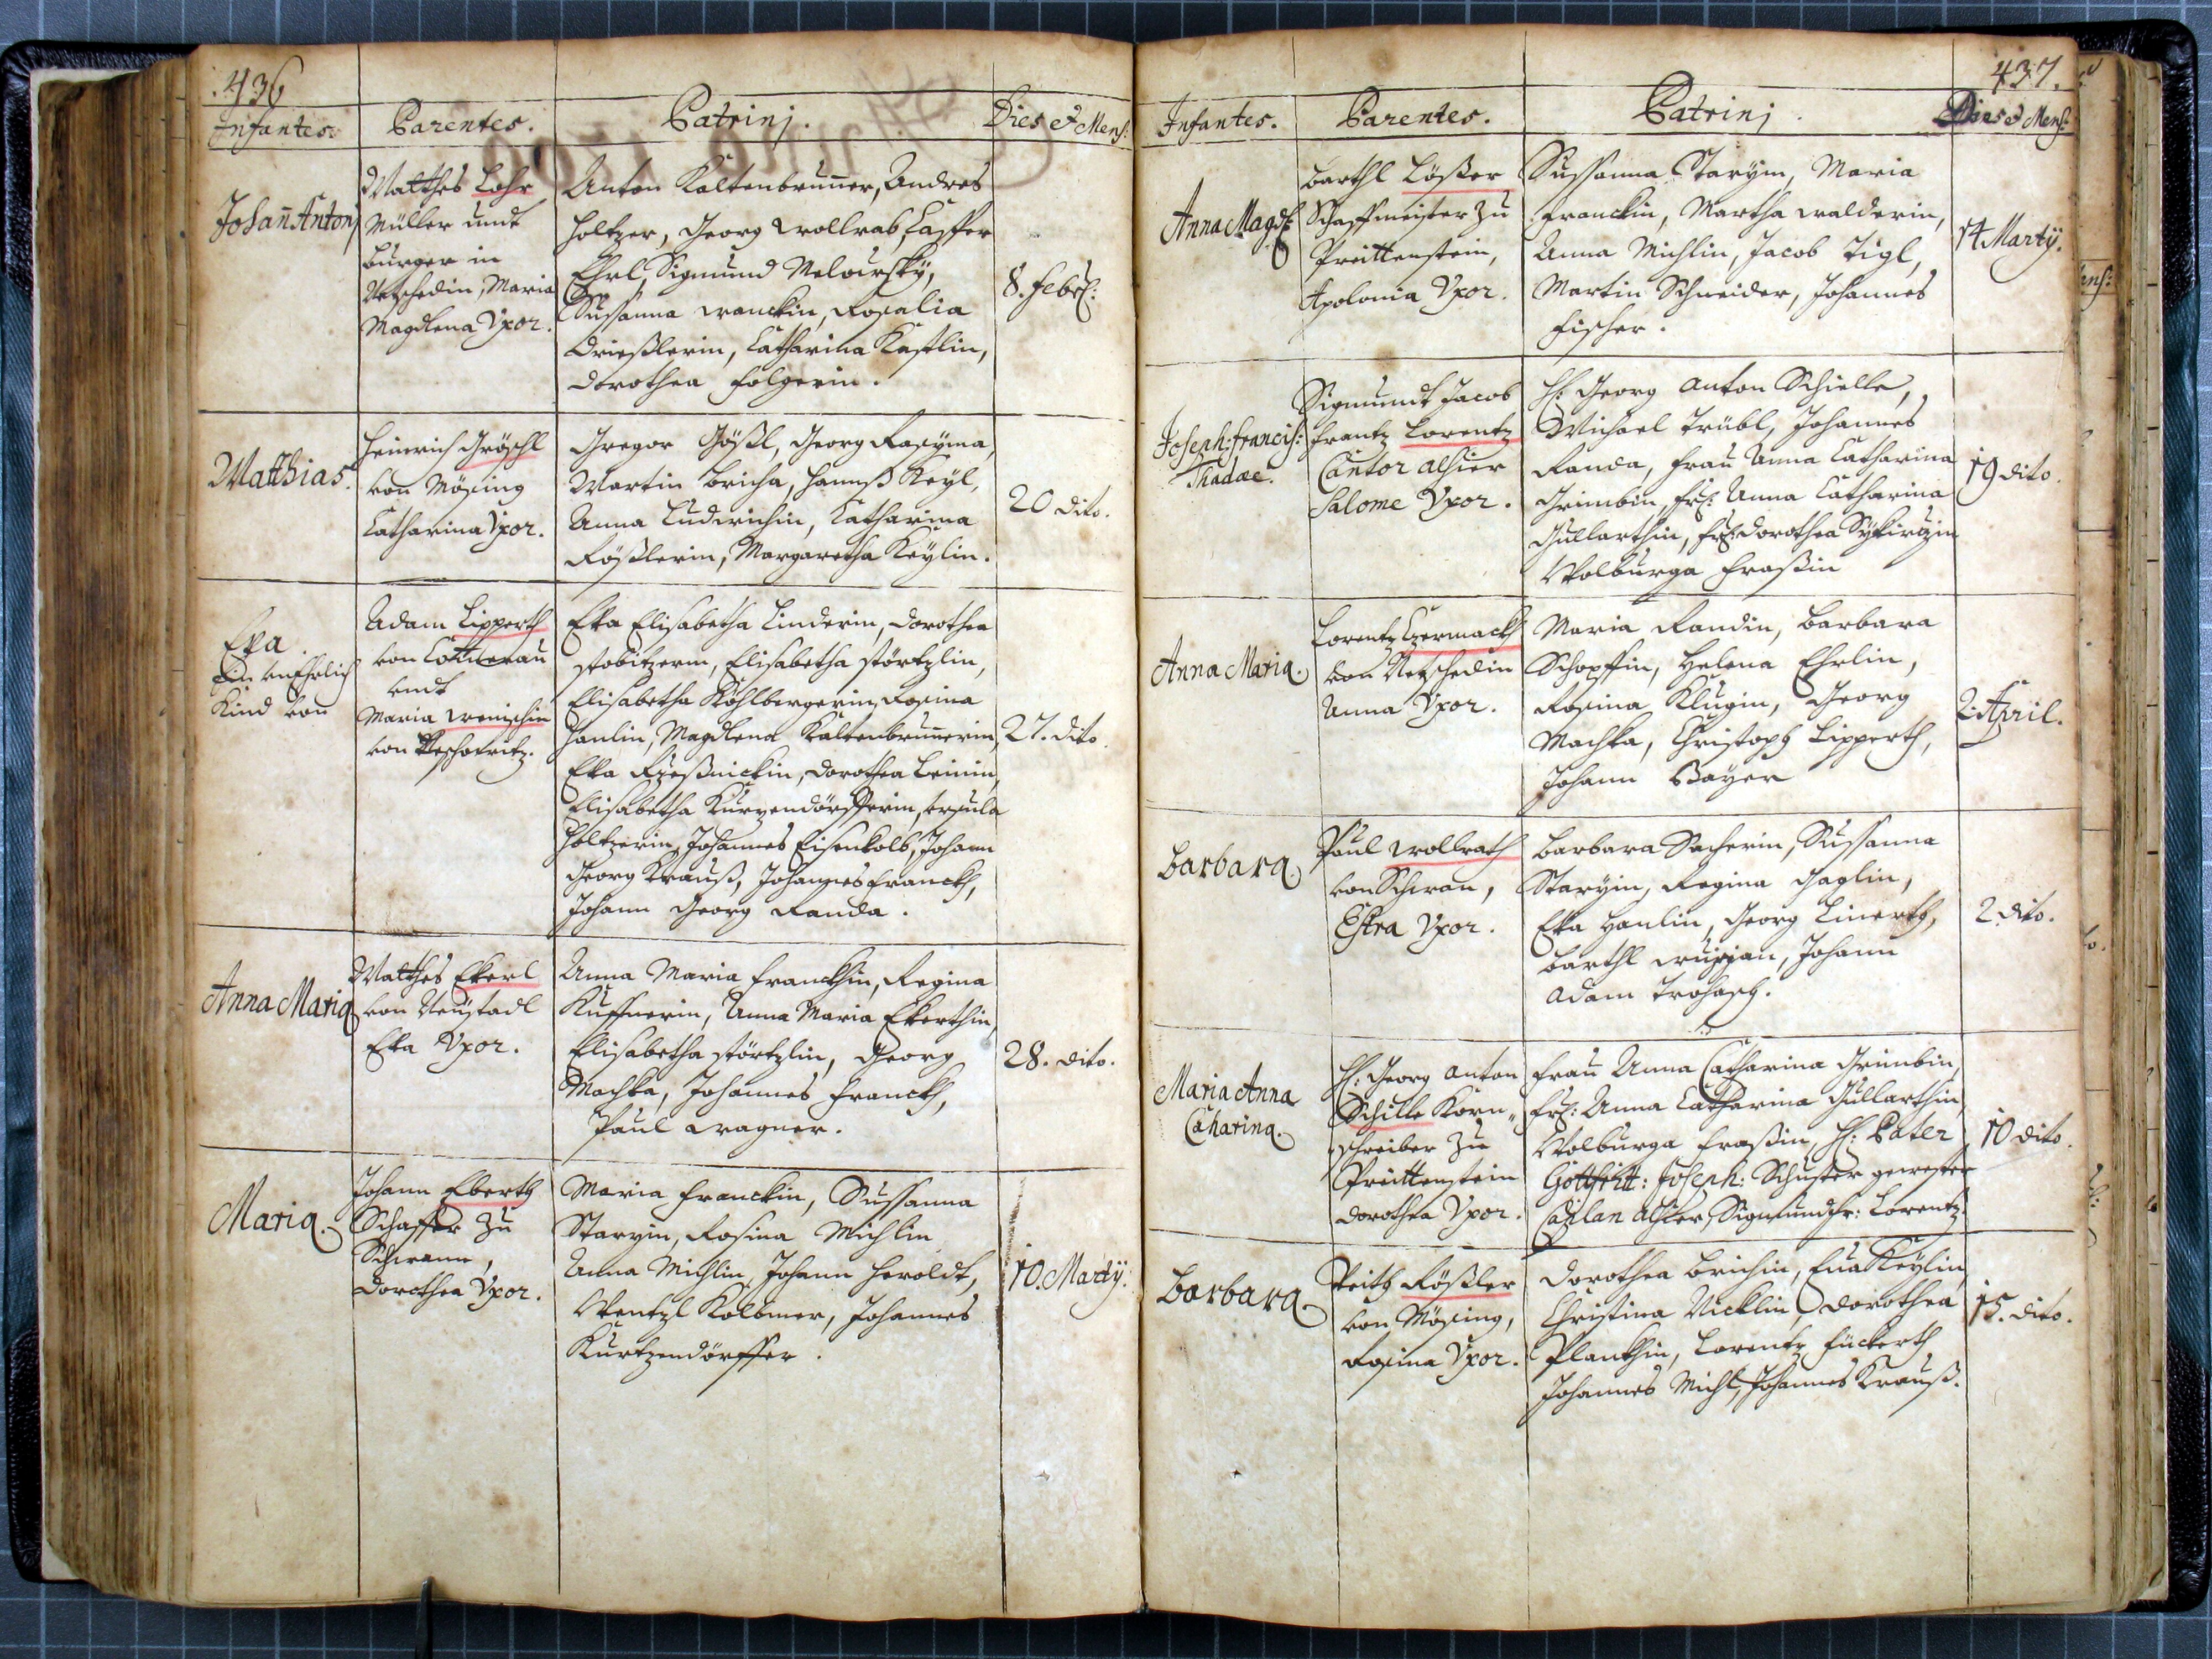 436
Infantes. Parentes. Patrinj. Dies et Mens:
Johañ Antonj
Matthes Lohr
Müller undt
burger in
Netschedin, Maria
Magdlena Vxor.
Anton Kaltenbrunner, Andres
Holtzer, Georg Wollrab, Casper
Ehrl, Sigmund
Susanna Wanckin, Rosalia
Drießlerin, Catharina Kastlin,
Dorothea Folgerin.
8. Febr:
Matthias.
Heinrich Gröschl
von Mösing
Catharina Vxor.
Gregor Gößl, Georg Rosÿma,
Martin Bricha, Hannß Keyl,
Anna Ludwichin, Catharina
Rößlerin, Margaretha Keÿlin.
20 dito.
Eva.
Ein unEhrlich
Kind von
Adam Lipperth
von
undt
Maria Wenischin
von
Eva Elisabetha Linderin, Dorothea
Stobitzerin, Elisabetha Störtzlin,
Elisabetha Köhlbergerin, Rosina
Hanlin, Magdlena Kaltenbrunnerin,
Eva Dorothea Beinin,
Elisabetha Kurzendörfferin, Ursula
Holtzerin, Johannes Eisenkolb, Johann
Georg Krauß, Johannes Franckh,
Johann Georg Randa.
27. dito.
Anna Maria
Matthes Ekerl
von Neüstadl
Eva Vxor.
Anna Maria Franckhin, Regina
Kuffnerin, Anna Maria Ekerthin,
Elisabetha Störtzlin, Georg
Machka, Johannes Franckh,
Paul Wagner.
28. dito.
Maria.
Johann Eberth
Schaffer zu
Schwann,
Dorothea Vxor.
Maria Franckin, Sussanna
Starÿin, Rosina Michlin
Anna Michlin, Johann Heroldt,
Wentzl Kolbmer, Johannes
Kurtzendörffer.
10. Martÿ.
437.
Infantes. Parentes. Patrinj. Dies et Mens:
Anna Magd:
Barthl Lößer
Schaffmeister zu
Preittenstein,
Apolonia Vxor.
Sussanna Starÿin, Maria
Franckin, Martha Walderin,
Anna Michlin, Jacob Tigl,
Martin Schneider, Johannes
Fischer.
14 Martÿ.
Joseph: Francis:
Thadae.
Sigmundt Jacob
Frantz Lorentz
Cantor alhier
Salome Vxor.
H: Georg Anton Schielle,
Michael Trübl, Johannes
Randa, Frau Anna Catharina
Grimbin, Fr: Anna Catharina
Gullarthin, Fr: Dorothea
Wolburga Fraßin
19 dito.
Anna Maria.
Lorentz Czermackh
von Netschedin
Anna Vxor.
Maria Randin, Barbara
Schopffin, Helena Ehrlin,
Rosina Klugin, Georg
Machka, Christoph Lipperth,
Johann Bayer
2. April.
Barbara
Paul Wollrath
von Schwan,
Estra Vxor.
Barbara Sacherin, Sussanna
Starÿin, Regina Gaglin,
Eva Hanlin, Georg Linerth,
Barthl Johann
Adam Trohasch.
2 dito.
Maria Anna
Caharina.
H: Georg Anton
Schille Korn„
schreiber zu
Preittenstein
Dorothea Vxor.
Frau Anna Catharina Grimbin,
Fr: Anna Catharina Gullarthin,
Wolburga Fraßin, H: Pater
Gottfritt: Joseph: Schuster gewester
Caplan alhier, Sigmund Fr: Lorentz.
10 dito.
Barbara
Veith Rößler
von Mösing,
Rosina Vxor.
Dorothea Brichin, Eua Keylin,
Christina Nicklin, Dorothea
Planthin, Lorentz Fückerth
Johannes Michl, Johannes Krauß.
15. dito.